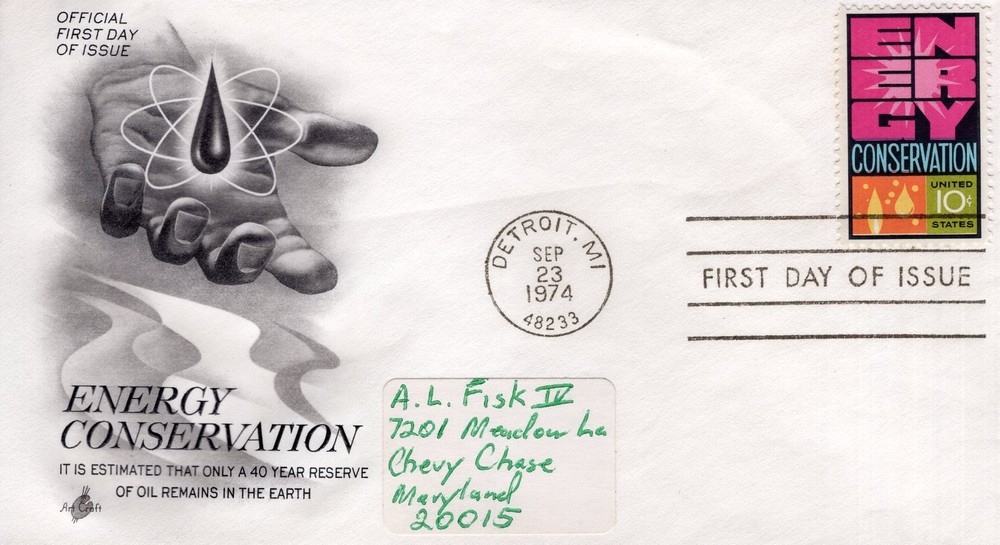 OFFICIAL
FIRST DAY
OF ISSUE
EN
ER
GY
CONSERVATION
UNITED
10¢
STATES
DETROIT, MI
SEP
23
1974
48233
FIRST DAY OF ISSUE
ENERGY
CONSERVATION
IT IS ESTIMATED THAT ONLY A 40 YEAR RESERVE
OF OIL REMAINS IN THE EARTH
Art Craft
A.L. Fisk IV
7201 Meadow Ln
Chevy Chase
Maryland
20015